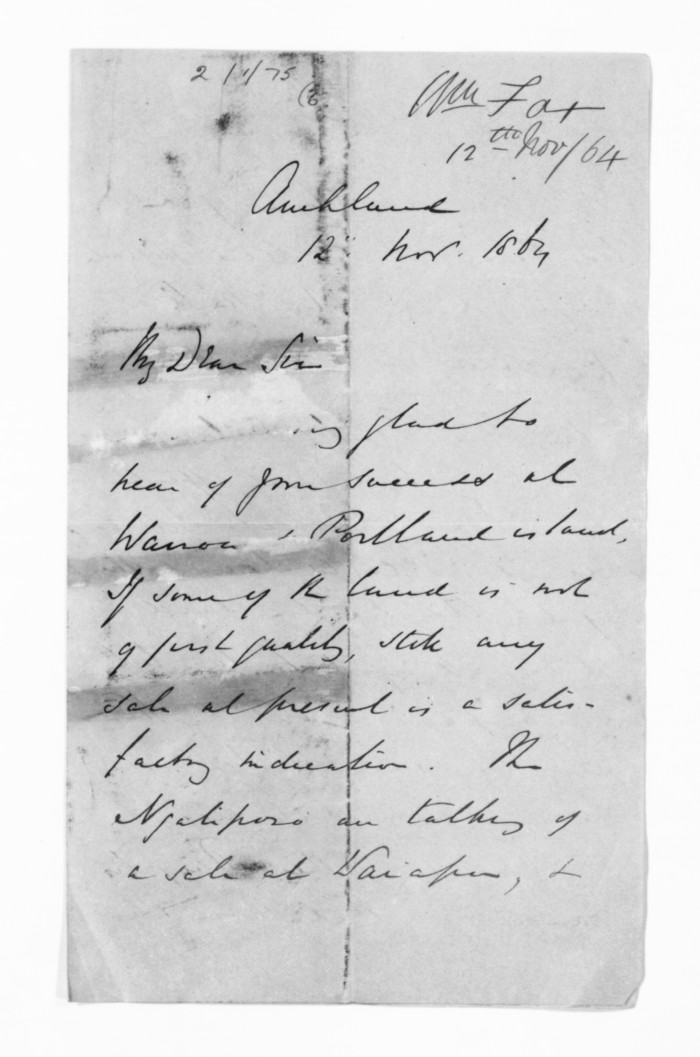 2/1/75
(6
Wm Fox
12th Nov/64
Auckland
12 Nov. 1864
My Dear Sir
glad to
hear of your success at
Wairoa & Portland island,
If some of the land is not
of first quality, still any
sale at present is a satis-
factory indication. The
Ngatiporo are talking of
a sale at Waiapu, &